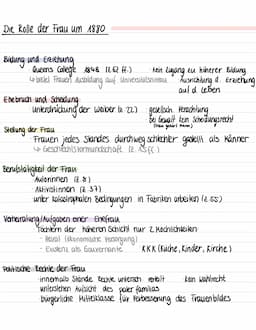 Die Rolle der Frau um 1880
Bildung und Erziehung
Queens College 1848 (Z. 62 ff.) kein Zugang zu höherer Bildung
↳ bietet Frauen Ausbildung auf Universitätsniveau Ausrichtung d. Erziehung
auf d. Leben
Ehebruch und Scheidung
Unterdrückung der Weiber (Z. 22) gesellsch. Verachtung
bei Gewalt kein Scheidungsrecht
Stellung der Frau
Frauen jedes Standes durchweg schlechter gestellt als Männer
↳ Geschlechtsvormundschaft
Berufstätigkeit der Frau
Autorinnen
Aktivistinnen (Z. 37)
unter katastrophalen Bedingungen in Fabriken arbeiten (Z. 55)
Verheiratung/Aufgaben einer Ehefrau
Töchtern der höheren Schicht nur 2 Möglichkeiten
- Heirat (ökonomische Versorgung)
- Existenz als Gouvernante KKK (Küche, Kinder, Kirche)
Politische Rechte der Frau
innerhalb Stände Rechte unterschiedlich verteilt kein Wahlrecht
unterstehen Aufsicht des pater familias
bürgerliche Mittelklasse für Verbesserung des Frauenbildes